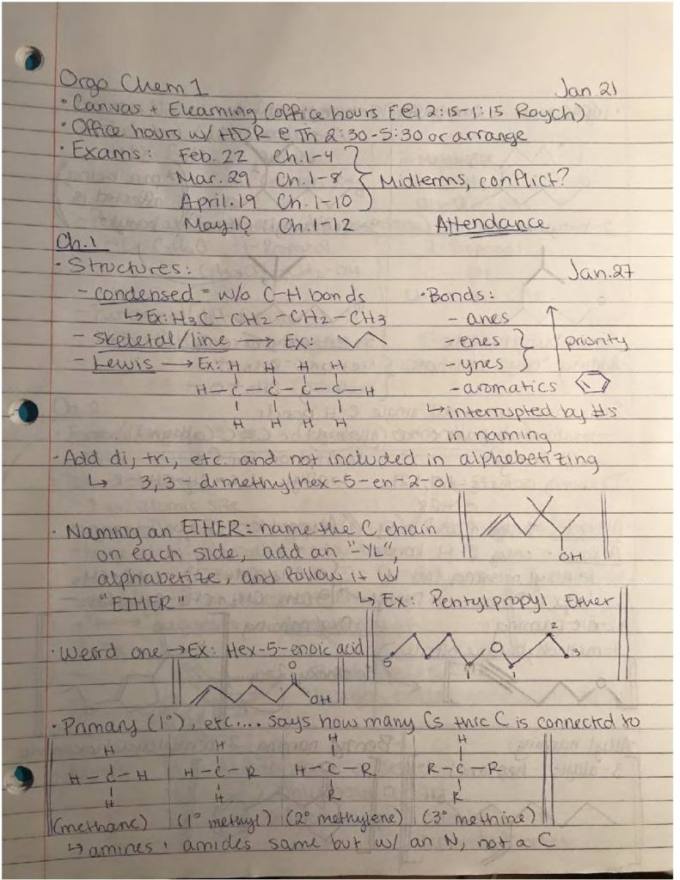 Orgo Chem 1 Jan 21
• Canvas + Elearning (office hours F@12:15-1:15 Roych)
• Office hours w/ HDR @ Th 2:30-5:30 or arrange
• Exams: Feb. 22 Ch.1-4
Mar. 29 Ch.1-8 } Midterms, conflict?
April.19 Ch.1-10
May.10 Ch.1-12 Attendance
Ch.1
• Structures: Jan.27
- condensed = w/o C-H bonds • Bonds:
↳Ex: H3C-CH2-CH2-CH3 - anes
- skeletal/line → Ex: - enes } priority
- Lewis → Ex: H H H H - ynes
H-C-C-C-C-H - aromatics
H H H H ↳ interrupted by #s
in naming
• Add di, tri, etc. and not included in alphebetizing
↳ 3,3-dimethylhex-5-en-2-ol
• Naming an ETHER: name the C chain
on each side, add an "-YL", OH
alphabetize, and follow it w/
"ETHER" ↳ Ex: Pentylpropyl Ether
• Weird one → Ex: Hex-5-enoic acid 5 1 O 1 2 3
O
OH
• Primary (1°), etc.... says how many Cs this C is connected to
H H H H
H-C-H H-C-R H-C-R R-C-R
H H R R
(methane) (1° methyl) (2° methylene) (3° methine)
↳ amines + amides same but w/ an N, not a C